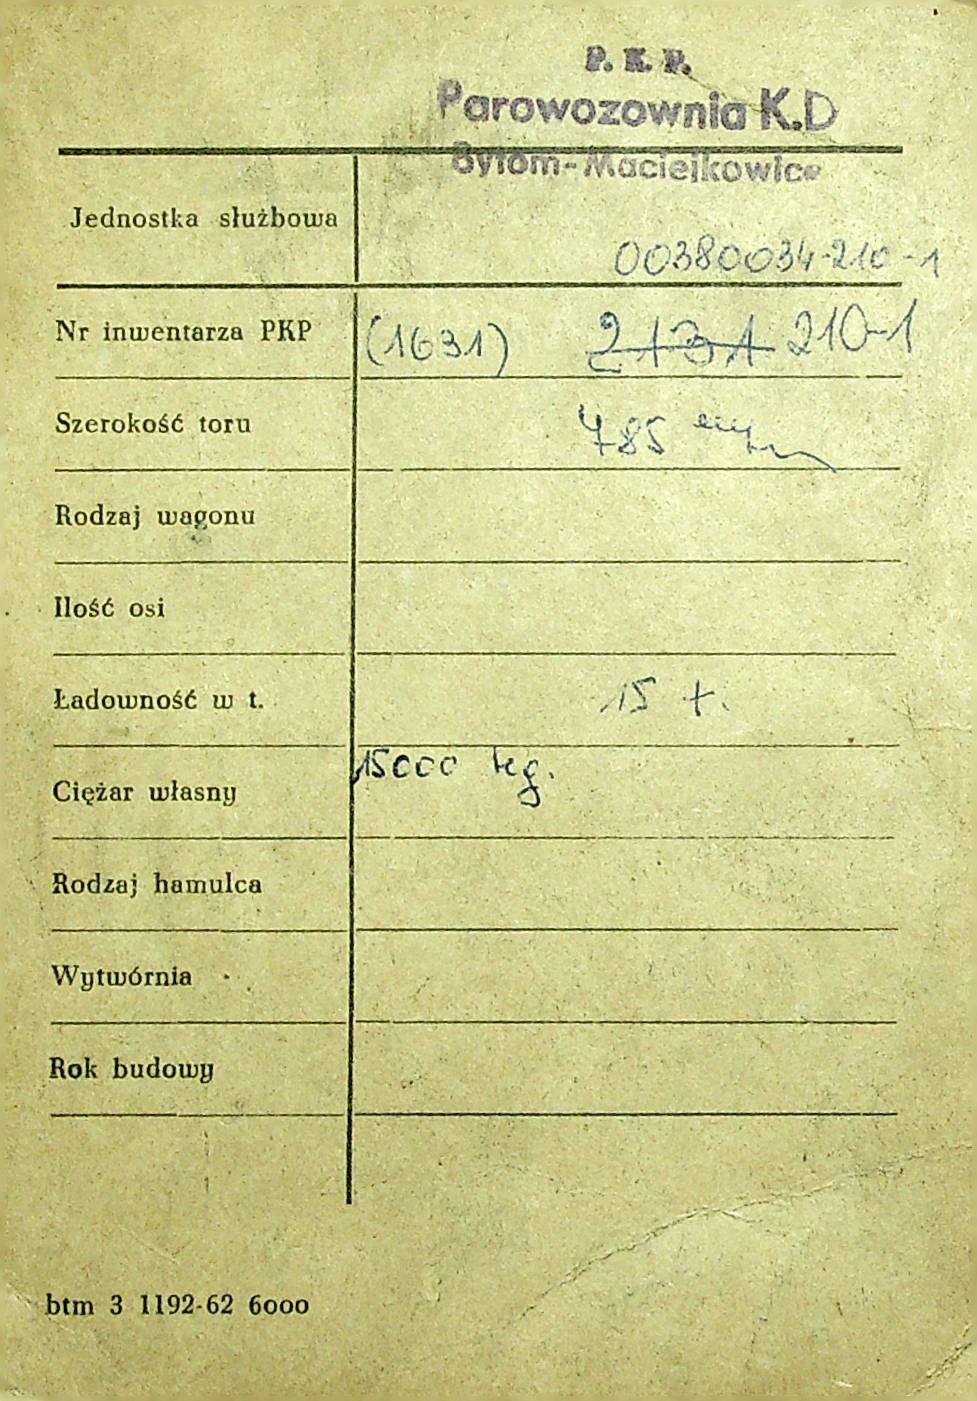 P. K. P.
Parowozownia K.D
Bytom-Maciejkowice
Jednostka służbowa
00380034-210-1
Nr inwentarza PKP (1631) 2131 210-1
Szerokość toru 785 mm
Rodzaj wagonu
Ilość osi
Ładowność w t. 15 t.
Ciężar własny 15000 kg.
Rodzaj hamulca
Wytwórnia
Rok budowy
btm 3 1192-62 6000